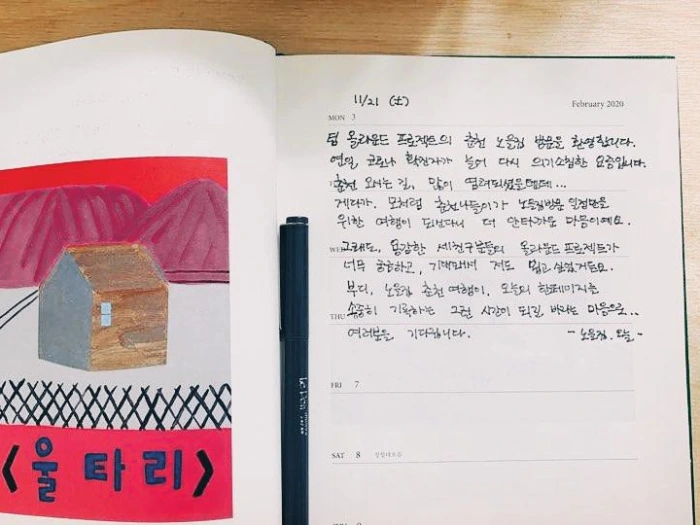 <울타리>
11/21 (土)
February 2020
MON 3
팀 올라운드 프로젝트의 춘천 노을집 방문을 환영합니다.
연일 코로나 확진자가 늘어 다시 의기소침한 요즘입니다.
춘천 오시는 길, 많이 염려되셨을텐데...
게다가, 모처럼 춘천나들이가 노을집방문 일정만을
위한 여행이 되셨다니 더 안타까운 마음이예요.
WED
그래도, 용감한 세친구분들의 올라운드 프로젝트가
너무 궁금하고, 기대돼서 저도 뵙고 싶었거든요.
부디, 노을집 춘천여행이, 오늘의 한페이지를
THU
소중히 기록하는 그런 시간이 되길 바라는 마음으로..
여러분을 기다립니다.
- 노을집. 오늘 -
FRI 7
SAT 8